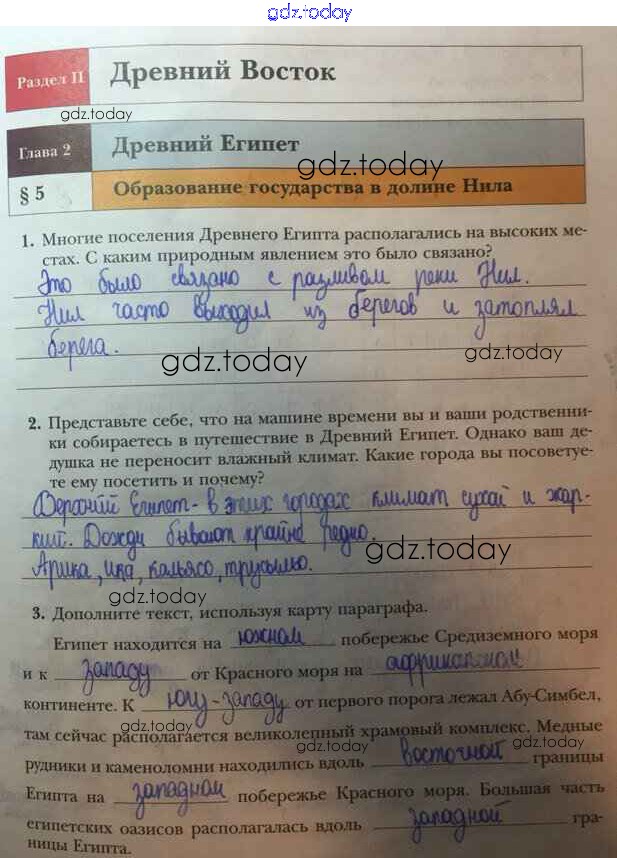 gdz.today
Раздел II Древний Восток
gdz.today
Глава 2 Древний Египет
gdz.today
§ 5 Образование государства в долине Нила
1. Многие поселения Древнего Египта располагались на высоких ме-
стах. С каким природным явлением это было связано?
Это было связано с разливом реки Нил.
Нил часто выходил из берегов и затоплял
берега.
gdz.today gdz.today
2. Представьте себе, что на машине времени вы и ваши родственни-
ки собираетесь в путешествие в Древний Египет. Однако ваш де-
душка не переносит влажный климат. Какие города вы посоветуе-
те ему посетить и почему?
Верхний Египет - в этих городах климат сухой и жар-
кий. Дожди бывают крайне редко.
gdz.today
gdz.today
3. Дополните текст, используя карту параграфа.
Египет находится на южном побережье Средиземного моря
и к западу от Красного моря на африканском
континенте. К югу-западу от первого порога лежал Абу-Симбел,
gdz.today
там сейчас располагается великолепный храмовый комплекс. Медные
gdz.today gdz.today
рудники и каменоломни находились вдоль восточной границы
Египта на западном побережье Красного моря. Большая часть
египетских оазисов располагалась вдоль западной гра-
ницы Египта.